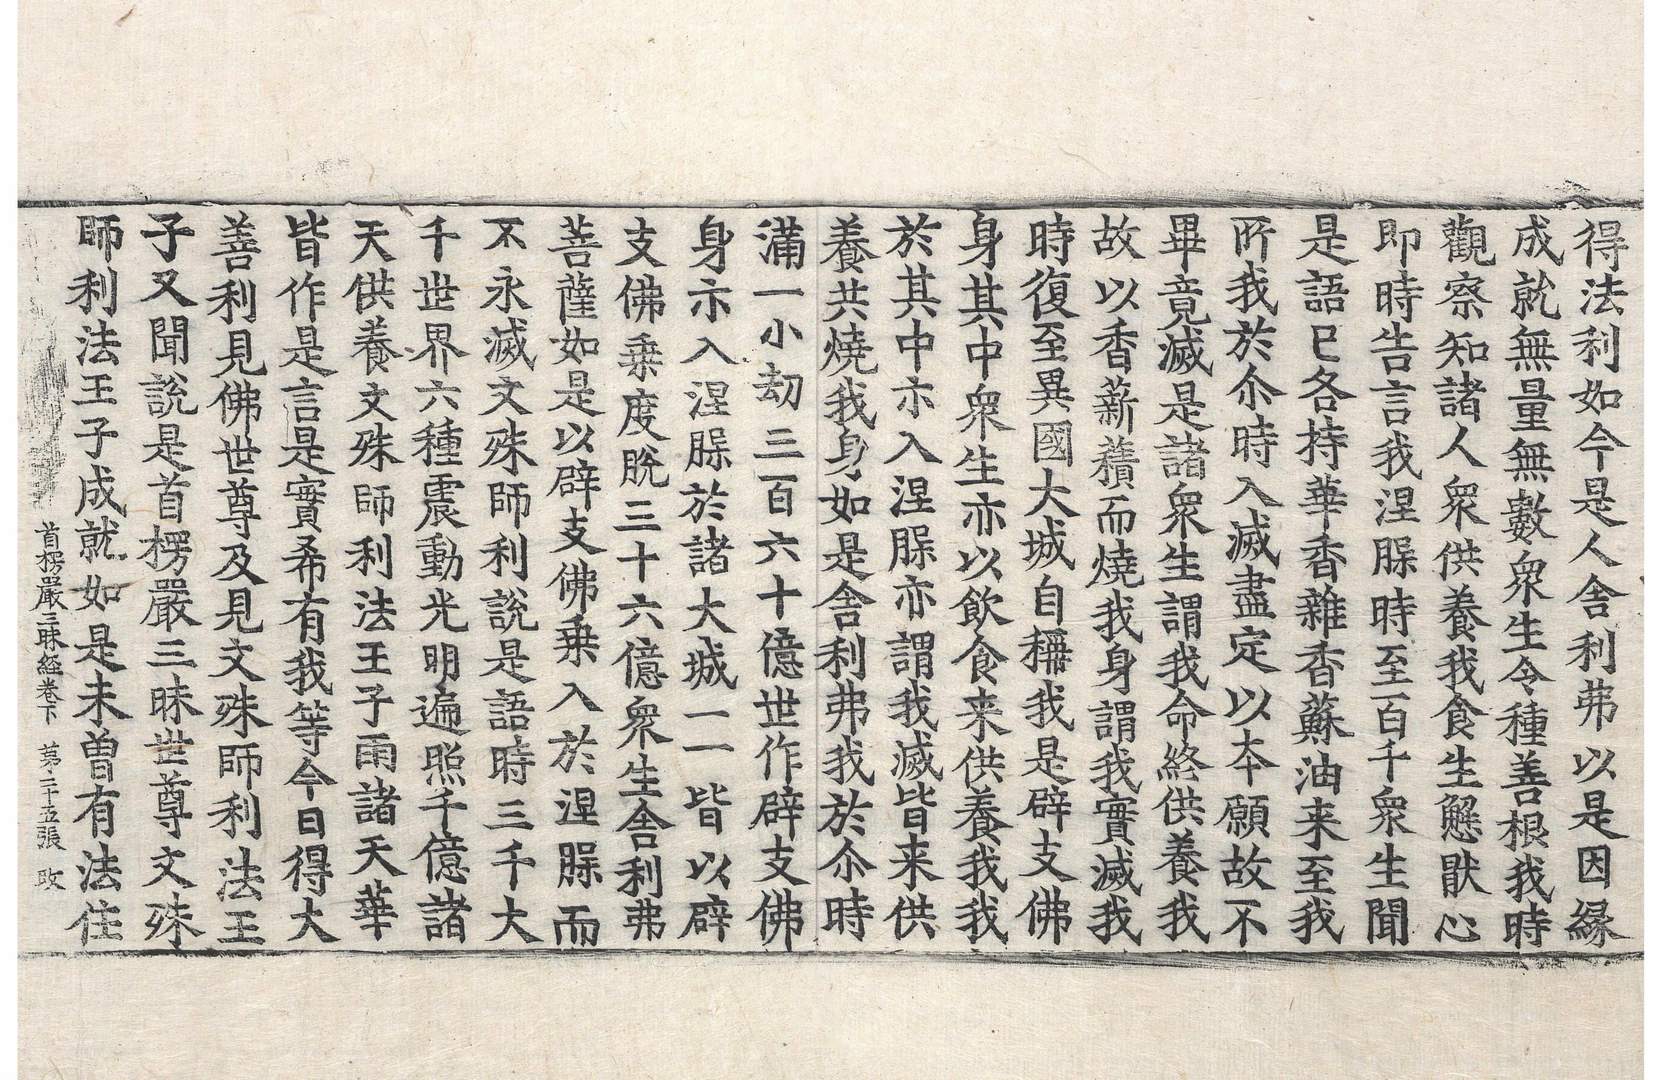 得法利如今是人舍利弗以是因縁
成就無量無數衆生令種善根我時
觀察知諸人衆供養我食生懈猒心
即時告言我涅槃時至百千衆生聞
是語已各持華香雜香蘇油来至我
所我於尒時入滅盡定以夲願故不
畢竟滅是諸衆生謂我命終供養我
故以香薪積而燒我身謂我實滅我
時復至異國大城自稱我是辟支佛
身其中衆生亦以飲食来供養我我
於其中亦入涅槃亦謂我滅皆来供
養共燒我身如是舍利弗我於尒時
滿一小劫三百六十億世作辟支佛
身亦入涅槃於諸大城一一皆以辟
支佛乗度脫三十六億衆生舍利弗
菩薩如是以辟支佛乗入於涅槃而
不永滅文殊師利說是語時三千大
千世界六種震動光明遍照千億諸
天供養文殊師利法王子雨諸天華
皆作是言是實希有我等今日得大
善利見佛世尊及見文殊師利法王
子又聞說是首楞嚴三昧世尊文殊
師利法王子成就如是未曽有法住
首楞嚴三昧経卷下　苐二十五張　改